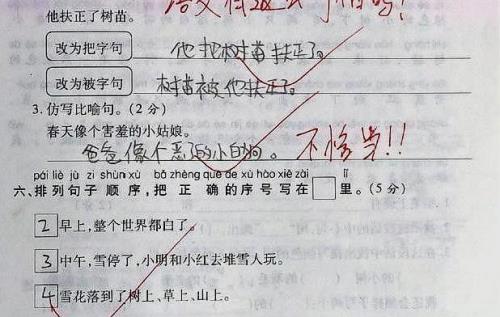 他扶正了树苗。
改为把字句 他把树苗扶正了。
改为被字句 树苗被他扶正了。
3. 仿写比喻句。(2 分)
春天像个害羞的小姑娘。
爸爸像个恶的小白狗。 不恰当!!
pái liè jù zi shùn xù bǎ zhèng què de xù hào xiě zài lǐ
六、排列句子 顺序,把 正 确 的 序 号 写 在 里。(5 分)
2 早上,整个世界都白了。
3 中午,雪停了,小明和小红去堆雪人玩。
4 雪花落到了树上、草上、山上。